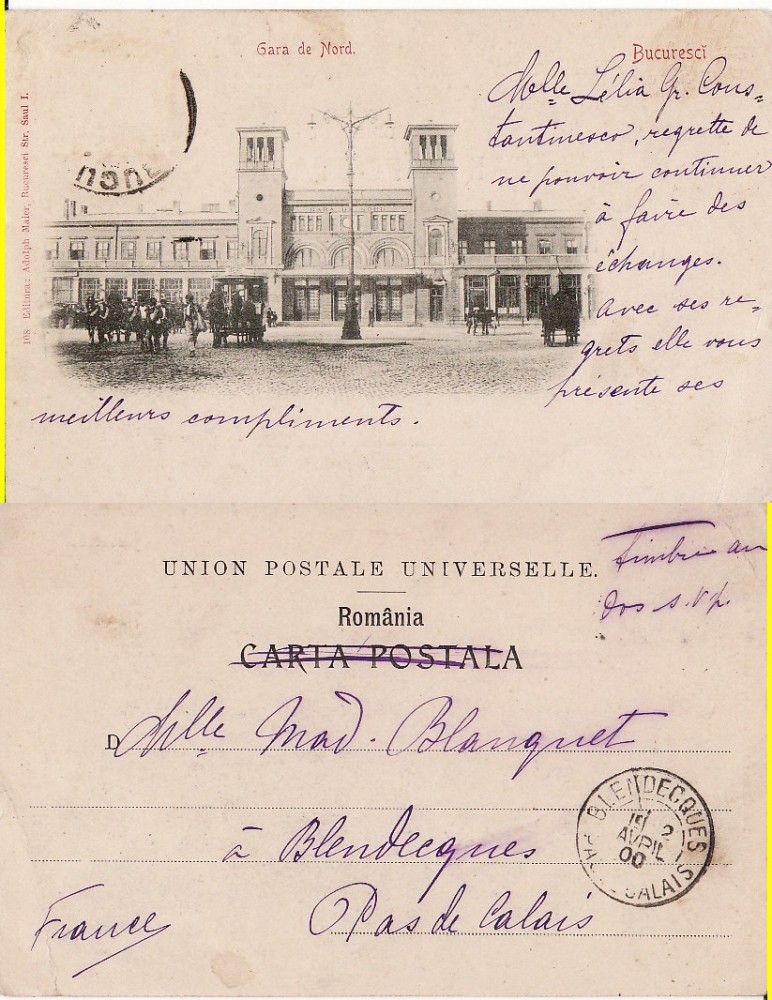 Gara de Nord.
Bucuresci
108 Editura: Adolph Maier, Bucuresci Str, Saul I.
Melle Lélia Gr. Cons=
tantinesco, regrette de
ne pouvoir continuer
à faire des
échanges.
Avec ses re=
grets elle vous
présente ses
meilleurs compliments.
BUCU
UNION POSTALE UNIVERSELLE.
Timbre au
dos s.v.p.
România
CARTA POSTALA
D Mlle Mad. Blanquet
à Blendecques
Pas de Calais
France
BLENDECQUES
AVRIL
00
PAS CALAIS